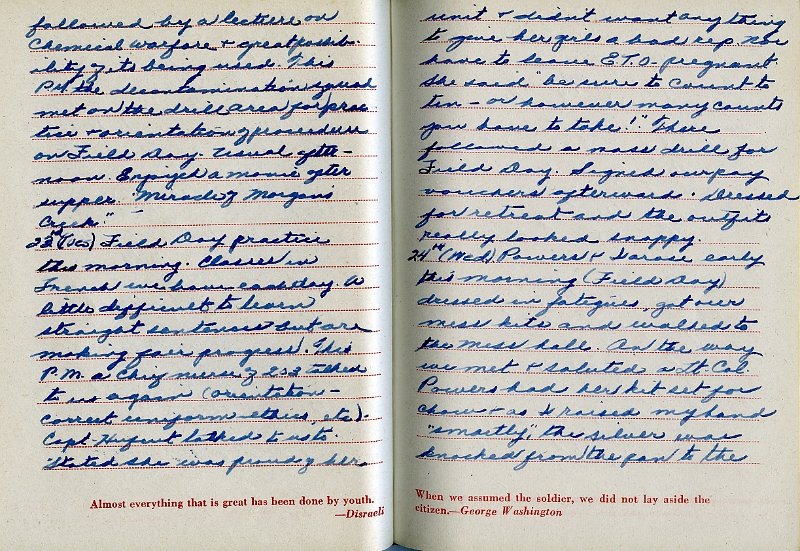 followed by a lecture on
Chemical Warfare + great possib-
ility of its being used. This
P.M. the decontamination squad
met on the drill area for prac
tice + orientation of procedure
on Field Day. Usual after-
noon. Enjoyed a movie after
supper. "Miracle of Morgans
Creek."
23rd (Tues) Field Day practice
this morning. Classes in
French we have each day. A
little difficult to learn
straight sentences but are
making fair progress. This
P.M. a Chief nurse of 232 talked
to us again (orientation -
correct uniform - ethics, etc).
Capt. Nugent talked to us to.
Stated she was proud of her
Almost everything that is great has been done by youth.
—Disraeli
unit + didn't want anything
to give her girls a bad rep. Nor
have to leave E.T.O. pregnant.
She said "be sure to count to
ten - or however many counts
you have to take!" There
followed a mass drill for
Field Day. Signed our pay
vouchers afterward. Dressed
for retreat and the outfits
really looked snappy.
24th (Wed) Powers + I arose early
this morning (Field Day)
dressed in fatigues, got our
mess kits and walked to
the mess hall. On the way
we met + saluted a Lt Col
Powers had her kit set for
chow + as I raised my hand
"smartly", the silver was
knocked from the pan to the
When we assumed the soldier, we did not lay aside the
citizen.—George Washington